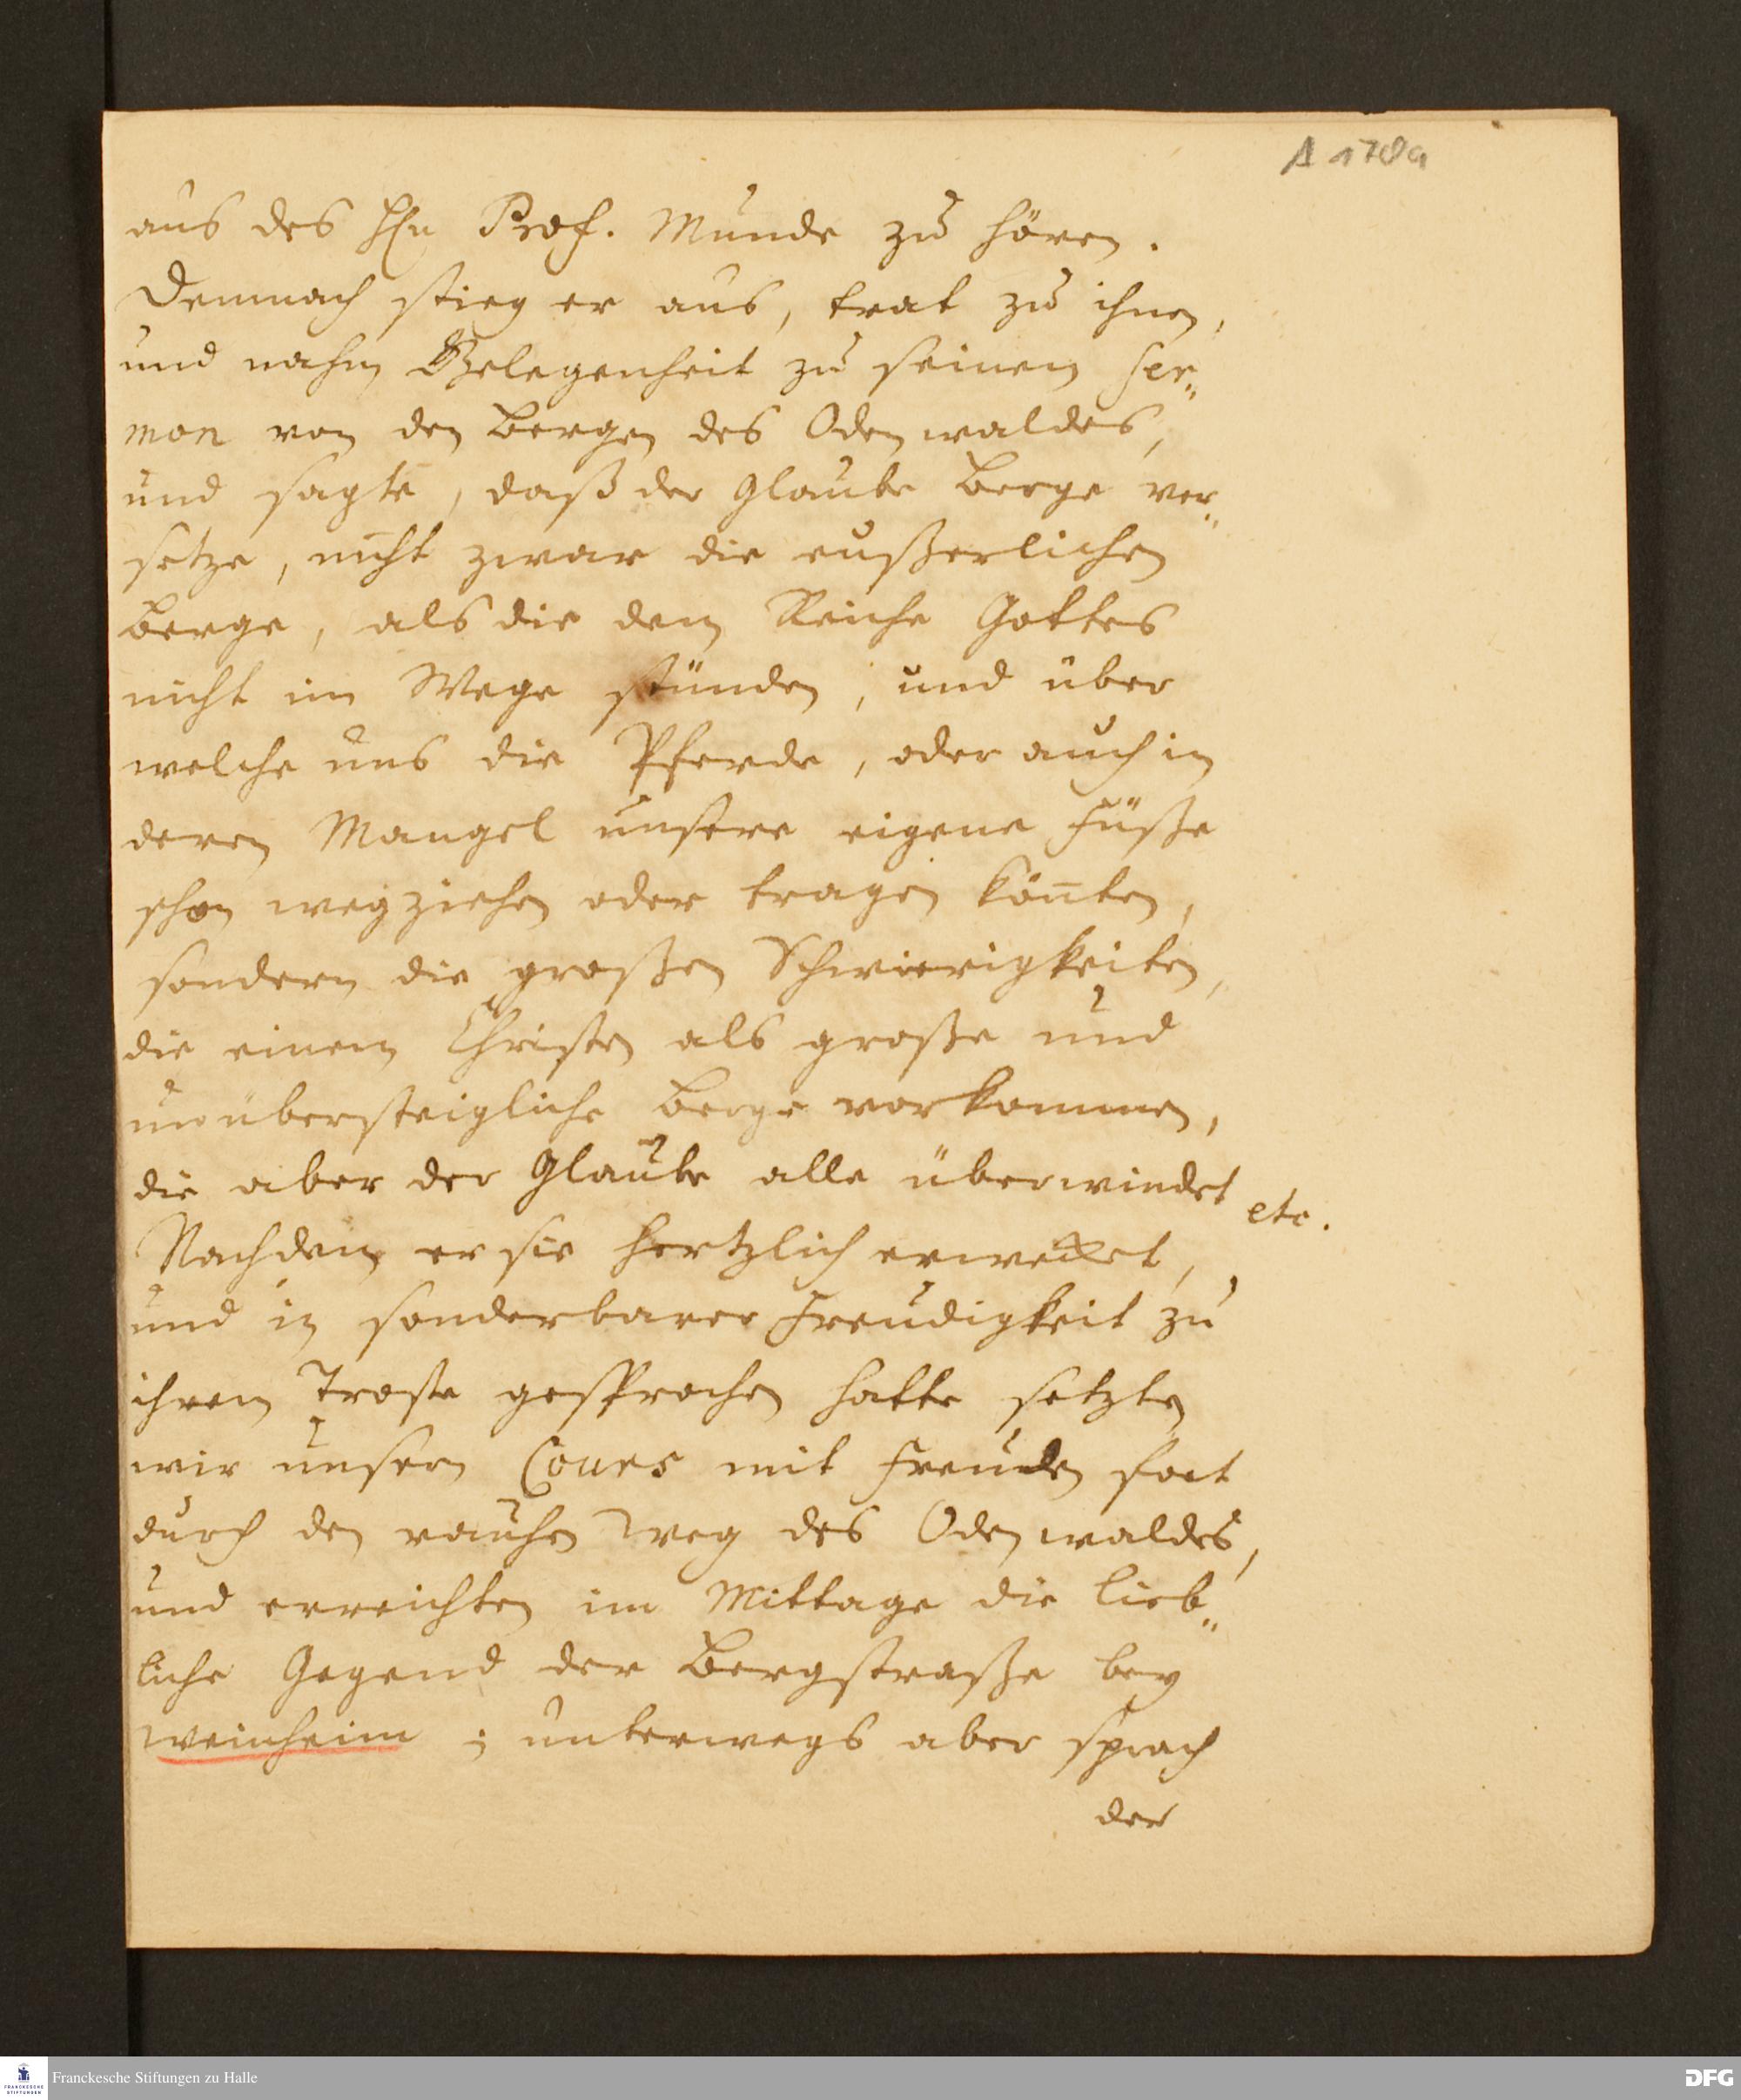 A 178a
aus des Hn Prof. Munde zu hören.
Demnach stieg er aus, trat zu ihnen,
und nahm Gelegenheit zu seinem Ser„
mon von den Bergen des Odenwaldes,
und sagte, daß der Glaube Berge ver„
setze, nicht zwar die eußerlichen
Berge, als die dem Reiche Gottes
nicht im Wege stünden, und über
welche uns die Pferde, oder auch in
deren Mangel unsere eigene Füße
schon wegziehen oder tragen könten,
sondern die großen Schwierigkeiten,
die einem Christen als große und
unübersteigliche Berge vorkommen,
die aber der Glaube alle überwindet etc.
Nachdem er sie hertzlich erwecket,
und in sonderbarer Freudigkeit zu
ihrem Troste gesprochen hatte setzten
wir unsern Cours mit Freuden fort
durch den rauhen Weg des Odenwaldes,
und erreichten im Mittage die lieb„
liche Gegend der Bergstraße bey
Weinheim; unterwegs aber sprach
der
FRANCKESCHE STIFTUNGEN
Franckesche Stiftungen zu Halle
DFG